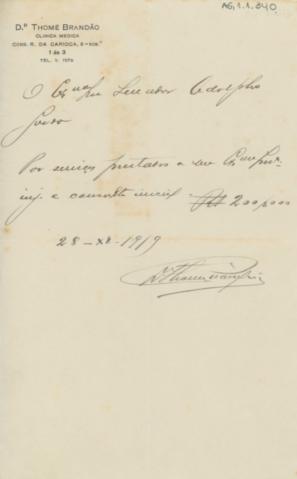 AG.1.1.040
Dr. THOMÉ BRANDÃO
CLINICA MEDICA
CONS. R. DA CARIOCA, 8 - SOB.º
1 ás 3
TEL. C. 1575
O Exmo Snr Senador Adolpho
Gordo
Por serviços prestados a sua Exma
inj. e consulta 200,000
28-XI-1919
Dr Thomé Brandão